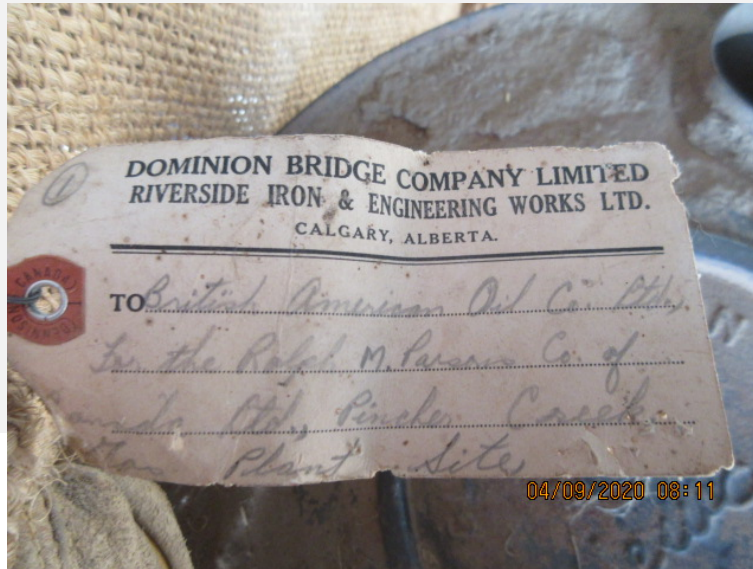 DOMINION BRIDGE COMPANY LIMITED
RIVERSIDE IRON & ENGINEERING WORKS LTD.
CALGARY, ALBERTA.
TO British American Oil Co. Ltd.
the Ralph M. Parsons Co. of
Ltd, Pincher Creek
Plant Site
CANADA
04/09/2020 08:11